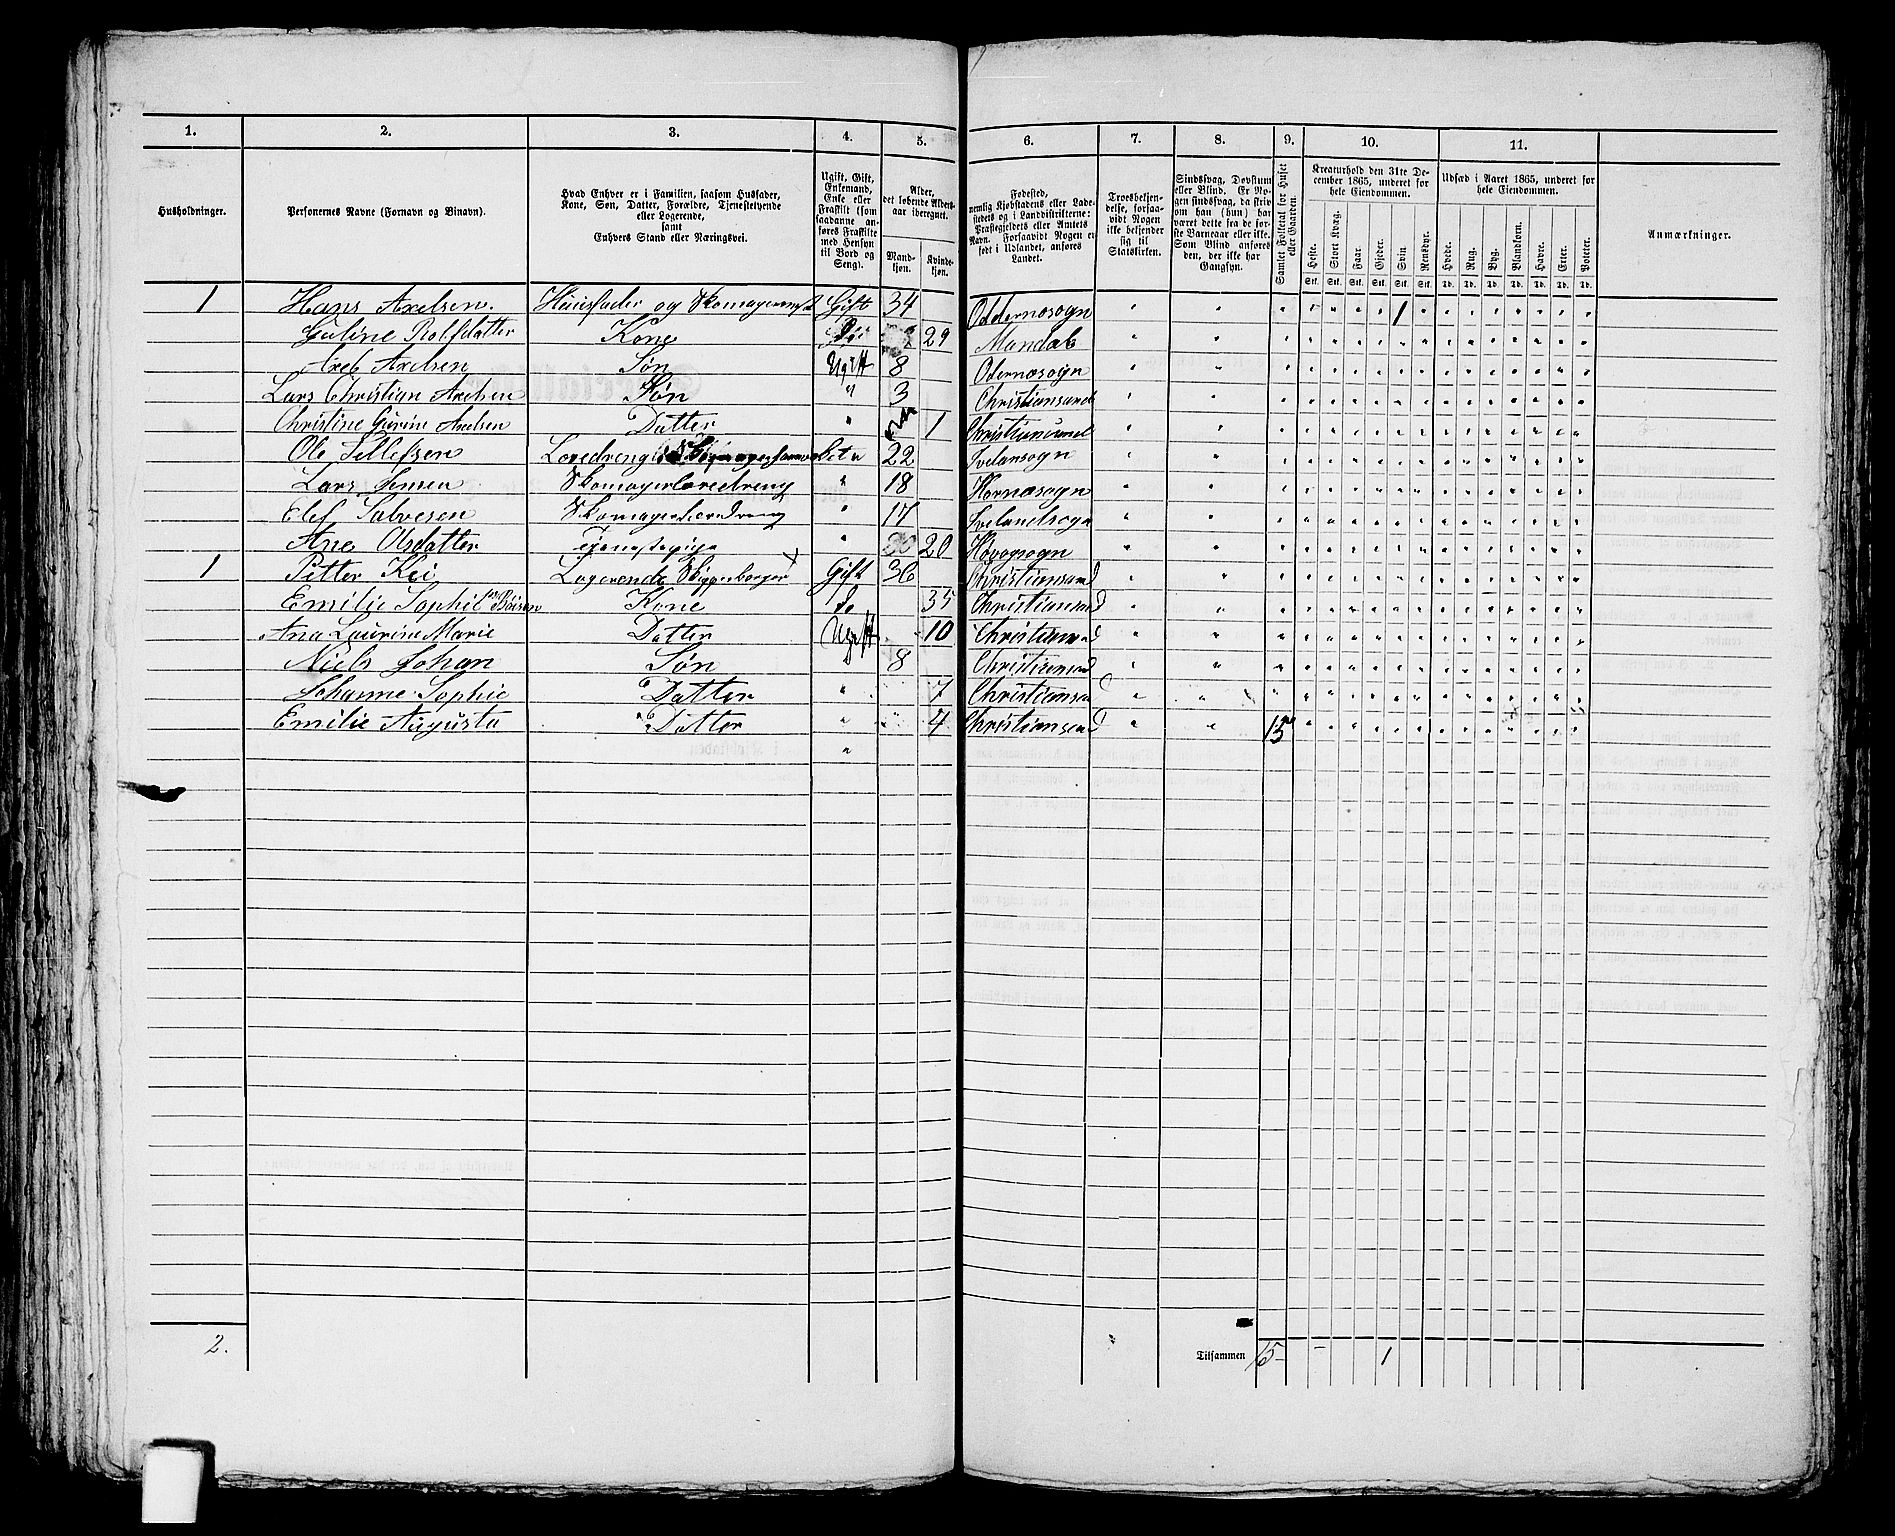 1. 2. 3. 4. 5. 6. 7. 8. 9. 10. 11.
Husholdninger.
Personernes Navne (Fornavn og Binavn).
Hvad Enhver er i Familien, saasom Husfader,
Kone, Søn, Datter, Forældre, Tjenestetyende
eller Logerende,
samt
Enhvers Stand eller Næringsvei.
Ugift, Gift,
Enkemand,
Enke eller
Fraskilt (som
saadanne an-
føres Fraskilte
med Hensyn
til Bord og
Seng).
Alder,
det løbende Alders-
aar iberegnet.
Mand-
kjøn.
Kvinde-
kjøn.
Fødested,
nemlig Kjøbstadens eller Lade-
stedets og i Landdistrikterne:
Præstegjeldets eller Amtets
Navn. Forsaavidt Nogen er
født i Udlandet, anføres
Landet.
Troesbekjen-
delse, forsaa-
vidt Nogen
ikke bekjender
sig til
Statskirken.
Sindssvag, Døvstum
eller Blind. Er No-
gen sindssvag, da skriv
om han (hun) har
været dette fra de før-
ste Barneaar eller ikke.
Som Blind anføres
den, der ikke har
Gangsyn.
Samlet Folketal for Huset
eller Gaarden.
Kreaturhold den 31te De-
cember 1865, underet for
hele Eiendommen.
Heste. Stort Kvæg. Faar. Gjeder. Svin. Rensdyr.
Stk. Stk. Stk. Stk. Stk. Stk.
Udsæd i Aaret 1865, underet for
hele Eiendommen.
Hvede. Rug. Byg. Blandkorn. Havre. Erter. Poteter.
Td. Td. Td. Td. Td. Td. Td.
Anmærkninger.
1 Hans Axelsen. Huusfader og Skomagermest Gift 34 Oddernæsogn 1
Guline Rolfsdatter Kone Do 29 Mandal
Axel Axelsen Søn Ugift 8 Odernæsogn
Lars Christian Axelsen Søn " 3 Christiansand
Christine Gurine Axelsen Datter " 1 Christiansand
Ole Tellefsen 22 Ivelansogn
Lars Jensen Skomagerlæredreng " 18 Hornæsogn
Elef Salvesen Skomagerlæredreng " 17 Ivelandsogn
Ane Olsdatter Tjenestepige " 20 Høvogsogn
1 Petter Kei Logerende Skipperborger Gift 36 Christiansand
Emilie Sophie Kone Do 35 Christiansand
Ana Laurine Marie Datter Ugift 10 Christiansand
Niels Johan Søn 8 Christiansand
Johanne Sophie Datter " 7 Christiansand
Emilie Augusta Datter " 4 Christiansand 15
"
2. Tilsammen 15 - 1